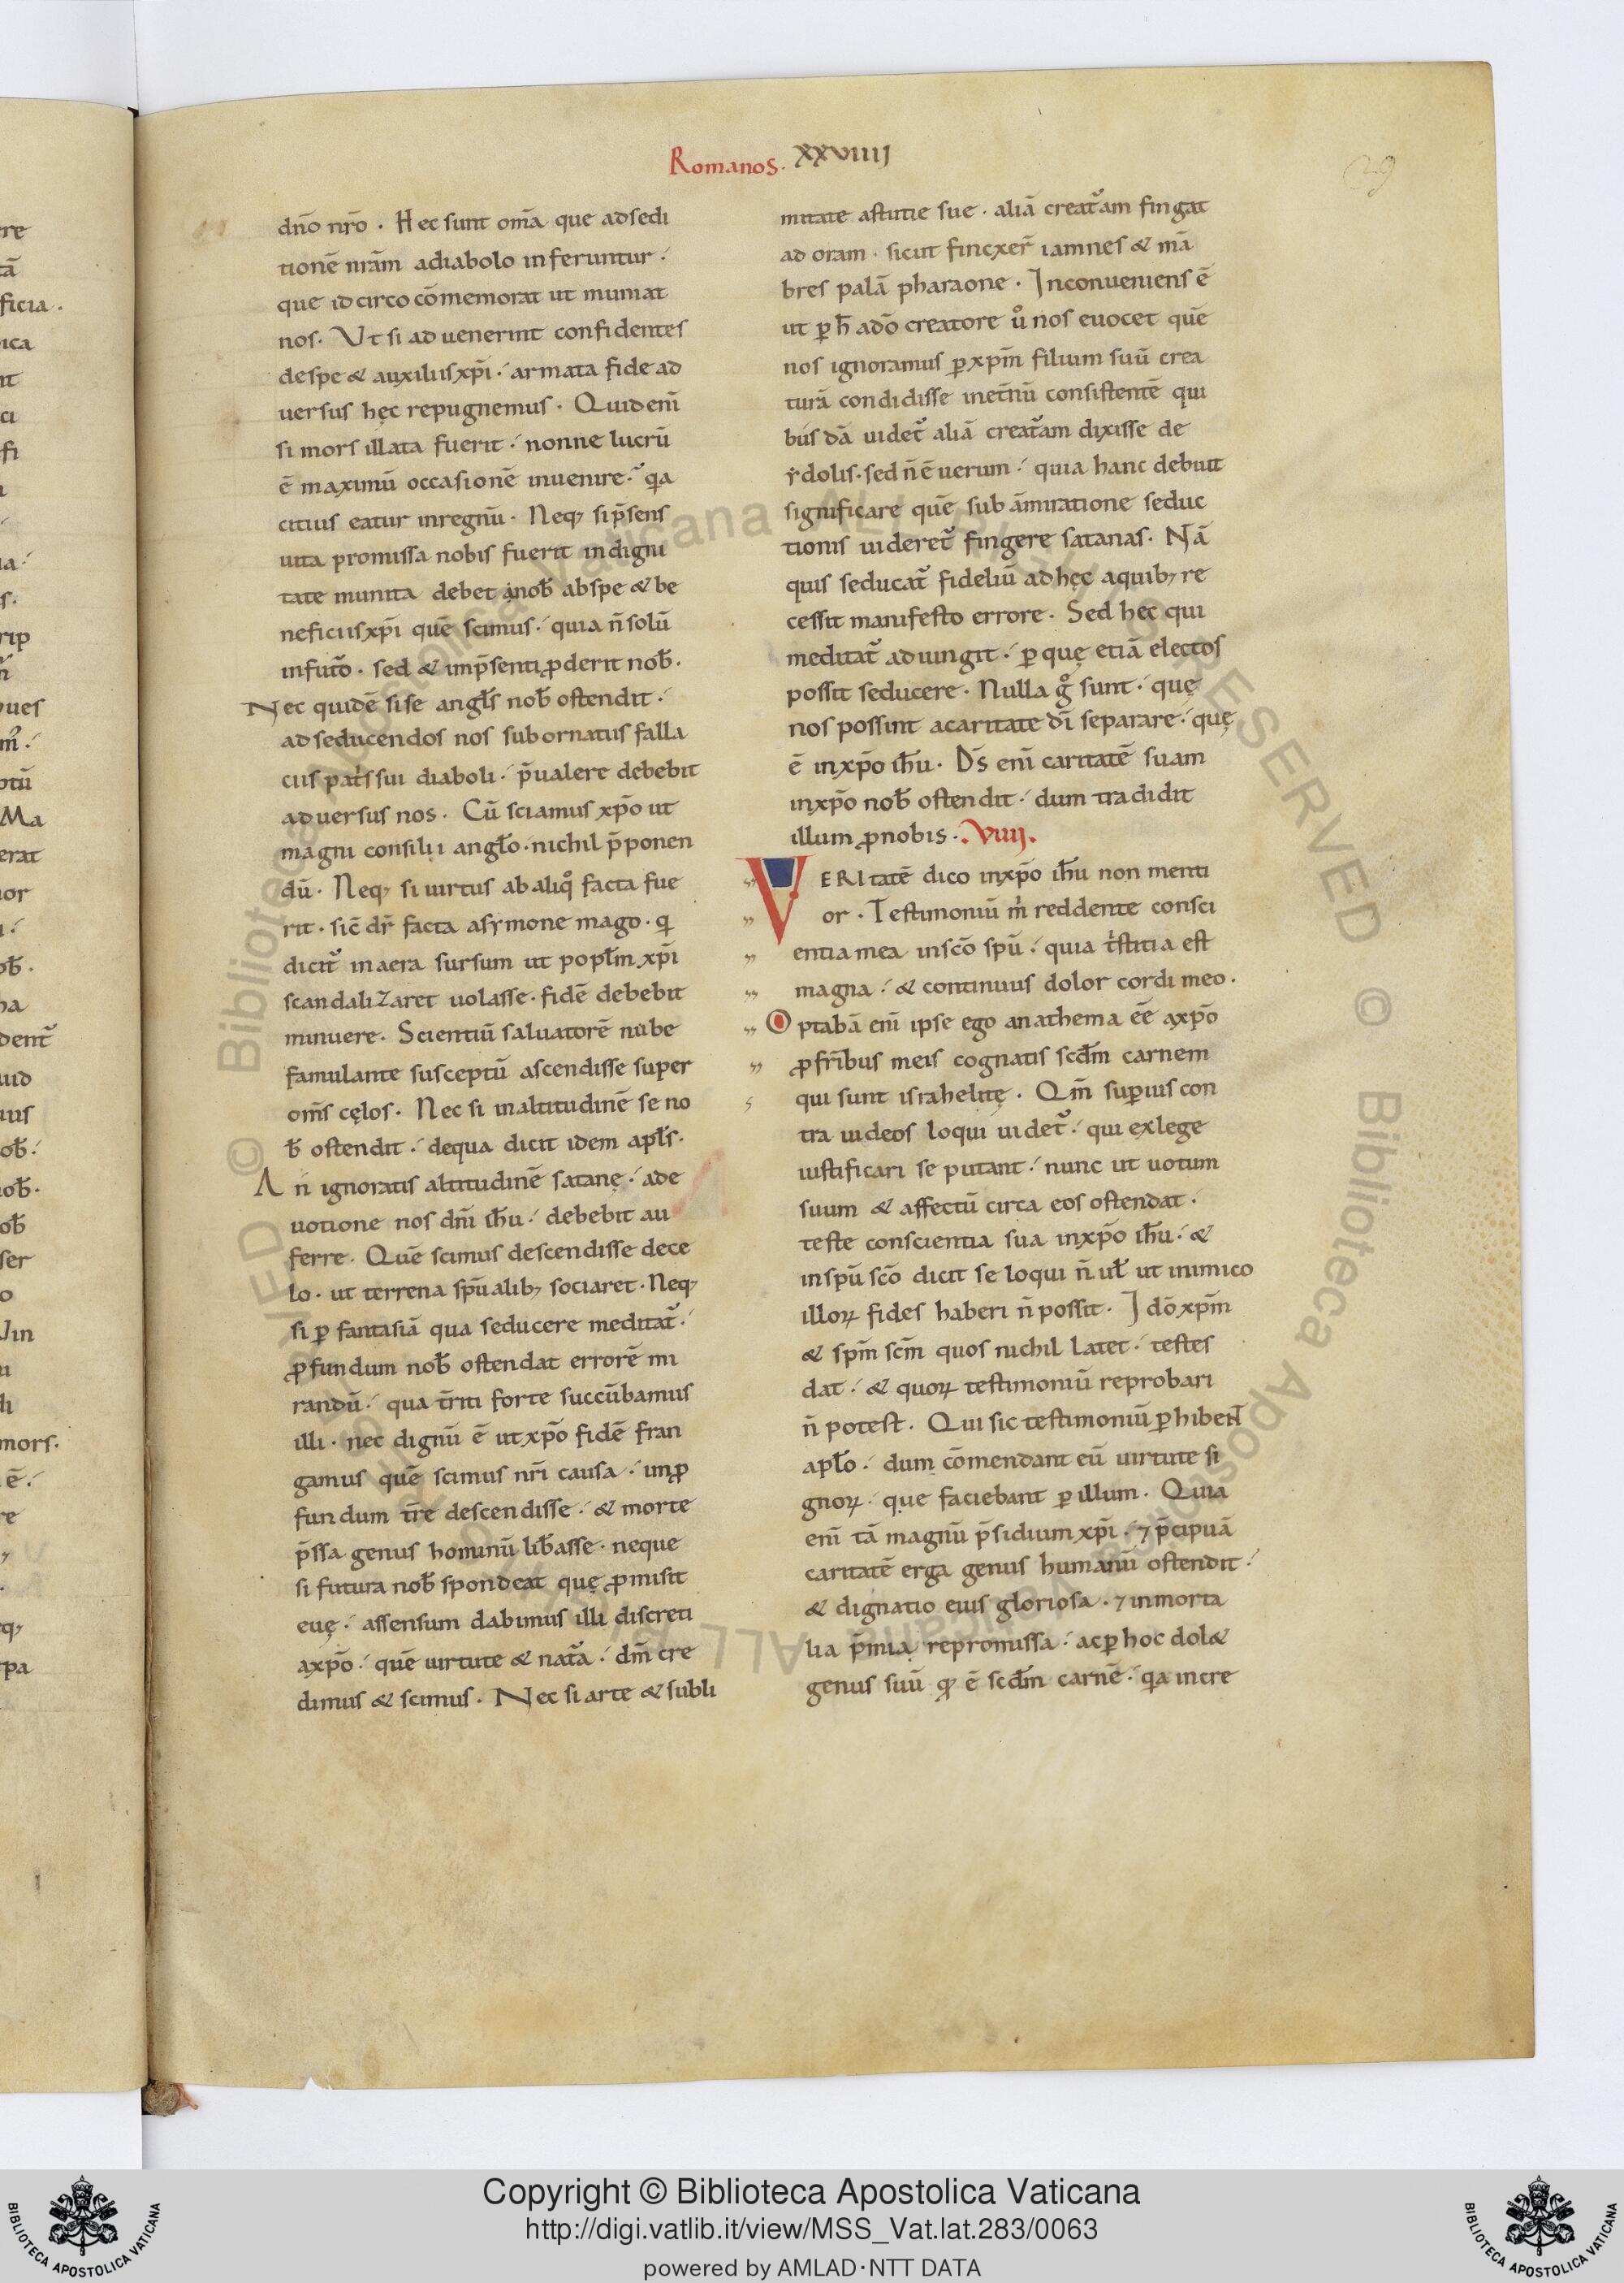 Romanos. XXVIIIJ
29
dn̄o nr̄o . Hec sunt om̄a que adsedi
tionē nr̄am adiabolo inferuntur .
que idcirco cōmemorat ut muniat
nos. Ut si aduenerint confidentes
despe & auxiliisxp̄i . armata fide ad
uersus hęc repugnemus . Quid enī
si mors illata fuerit . nonne lucrū
ē maximū occasionē inuenire . qa
citius eatur inregnū . Neq; si p̄sens
uita promissa nobis fuerit indigni
tate munita debet anob̄ abspe & be
neficiisxp̄i quē scimus . quia n̄ solū
infut᷑o . sed & inp̄senti ꝓderit nob̄.
Nec quidē si se angl̄s nob̄ ostendit .
adseducendos nos subornatus falla
ciis pat̄s sui diaboli . p̄ualere debebit
aduersus nos . Cū sciamus xp̄o ut
magni consilii angl̄o . nichil p̄ponen
dū . Neq; si uirtus ab aliqͦ facta fue
rit . sic̄ dr̄ facta asymone mago . q̄
dicit᷑ inaera sursum ut popl̄m xp̄i
scandalizaret uolasse . fidē debebit
minuere . Scientiū saluatorē nube
famulante susceptū ascendisse super
om̄s cęlos . Nec si inaltitudinē se no
b̄ ostendit . dequa dicit idem apl̄s .
An ignoratis altitudinē satanę . ade
uotione nos dn̄i ih̄u . debebit au
ferre . Quē scimus descendisse dece
lo . ut terrena sp̄ualib; sociaret . Neq;
si ꝑ fantasiā qua seducere meditat᷑ .
ꝓfundum nob̄ ostendat errorē mi
randū . qua t̄riti forte succūbamus
illi . nec dignū ē utxp̄o fidē fran
gamus quē scimus nr̄i causa . inꝓ
fundum t̄re descendisse . & morte
p̄ssa genus hominū lib̄asse . neque
si futura nob̄ spondeat quę ꝓmisit
euę . assensum dabimus illi discreti
axp̄o . quē uirtute & nat᷑a . dm̄ cre
dimus & scimus . Nec si arte & subli
mitate astutie sue . aliā creat᷑am fingat
ad oram . sicut fincxer̄ iamnes & mā
bres palā pharaone . Inconueniens ē
ut ꝑ h̄ adō creatore uͦ nos euocet quē
nos ignoramus ꝑ xpm̄ filium suū crea
turā condidisse inet̄nū consistentē qui
busdā uidet᷑ aliā creat᷑am dixisse de
ydolis . sed n̄ ē uerum . quia hanc debuit
significare quē sub āmiratione seduc
tionis uideret᷑ fingere satanas . Nā
quis seducat᷑ fideliū adhęc aquib; re
cessit manifesto errore . Sed hec qui
meditat᷑ adiungit . ꝑ quę etiā electos
possit seducere . Nulla gͦ sunt . quę
nos possint acaritate dī separare . quę
ē inxp̄o ih̄u . Ds̄ enī caritatē suam
inxp̄o nob̄ ostendit . dum tradidit
illum ꝓnobis . .VIIIJ.
VERItatē dico inxp̄o ih̄u non menti
or . Testimoniū m̄ reddente consci
entia mea insc̄o spū . quia t̄stitia est
magna . & continuus dolor cordi meo .
Optabā enī ipse ego anathema eē axp̄o
ꝓfrībus meis cognatis scd̄m carnem
qui sunt israhelitę . Qm̄ suꝑius con
tra iudeos loqui uidet᷑ . qui exlege
iustificari se putant . nunc ut uotum
suum & affectū circa eos ostendat .
teste conscientia sua inxp̄o ih̄u . &
inspū sc̄o dicit se loqui n̄ ul̄ ut inimico
illoꝝ fides haberi n̄ possit . Idō xpm̄
& spm̄ scm̄ quos nichil latet . testes
dat . & quoꝝ testimoniū reprobari
n̄ potest . Qui sic testimoniū ꝑhibent̄
apl̄o . dum cōmendant eū uirtute si
gnoꝝ . que faciebant ꝑ illum . Quia
enī tā magnū p̄sidium xp̄i . ⁊ p̄cipuā
caritatē erga genus humanū ostendit .
& dignatio eius gloriosa . ⁊ inmorta
lia p̄mia repromissa . acꝑ hoc dol&
genus suū qͩ ē scd̄m carnē . qa incre
Copyright © Biblioteca Apostolica Vaticana
http://digi.vatlib.it/view/MSS_Vat.lat.283/0063
powered by AMLAD·NTT DATA
BIBLIOTECA APOSTOLICA VATICANA
BIBLIOTECA APOSTOLICA VATICANA